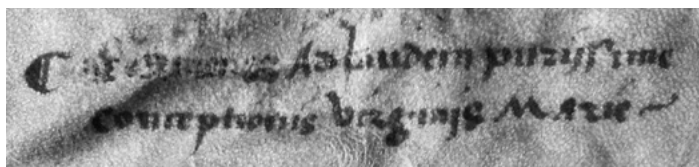 Ad laudem purissime
conceptionis virginis Marie